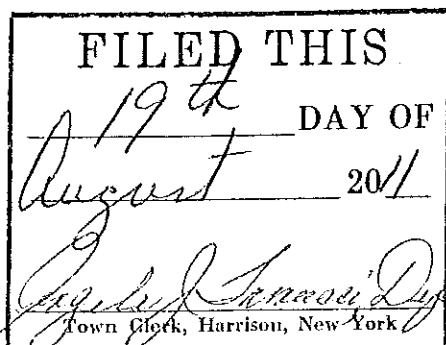 FILED THIS
19th DAY OF
August 2011
Town Clerk, Harrison, New York